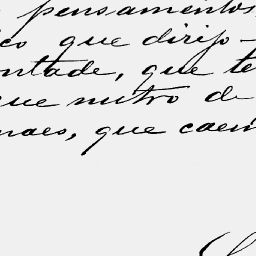 pensamentos,
co que dirijo -
ntade, que te
que nutro de
naes, que caem